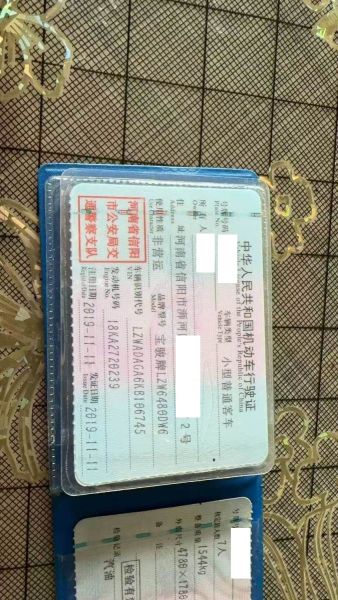 中华人民共和国机动车行驶证
Vehicle License of the People's Republic of China
号牌号码
Plate No.
车辆类型
Vehicle Type
小型普通客车
所有人
Owner
住址
Address
河南省信阳市浉河
2号
使用性质
Use Character
非营运
品牌型号
Model
宝骏牌LZW6480DW6
河南省信阳
市公安局交
通警察支队
车辆识别代号
VIN
LZWADAGA6KB106745
发动机号码
Engine No.
18KA2720239
注册日期
Register Date
2019-11-11
发证日期
Issue Date
2019-11-11
7人
整备质量
1544kg
外廓尺寸
4780×1780
备注
检验记录
检验有
汽油